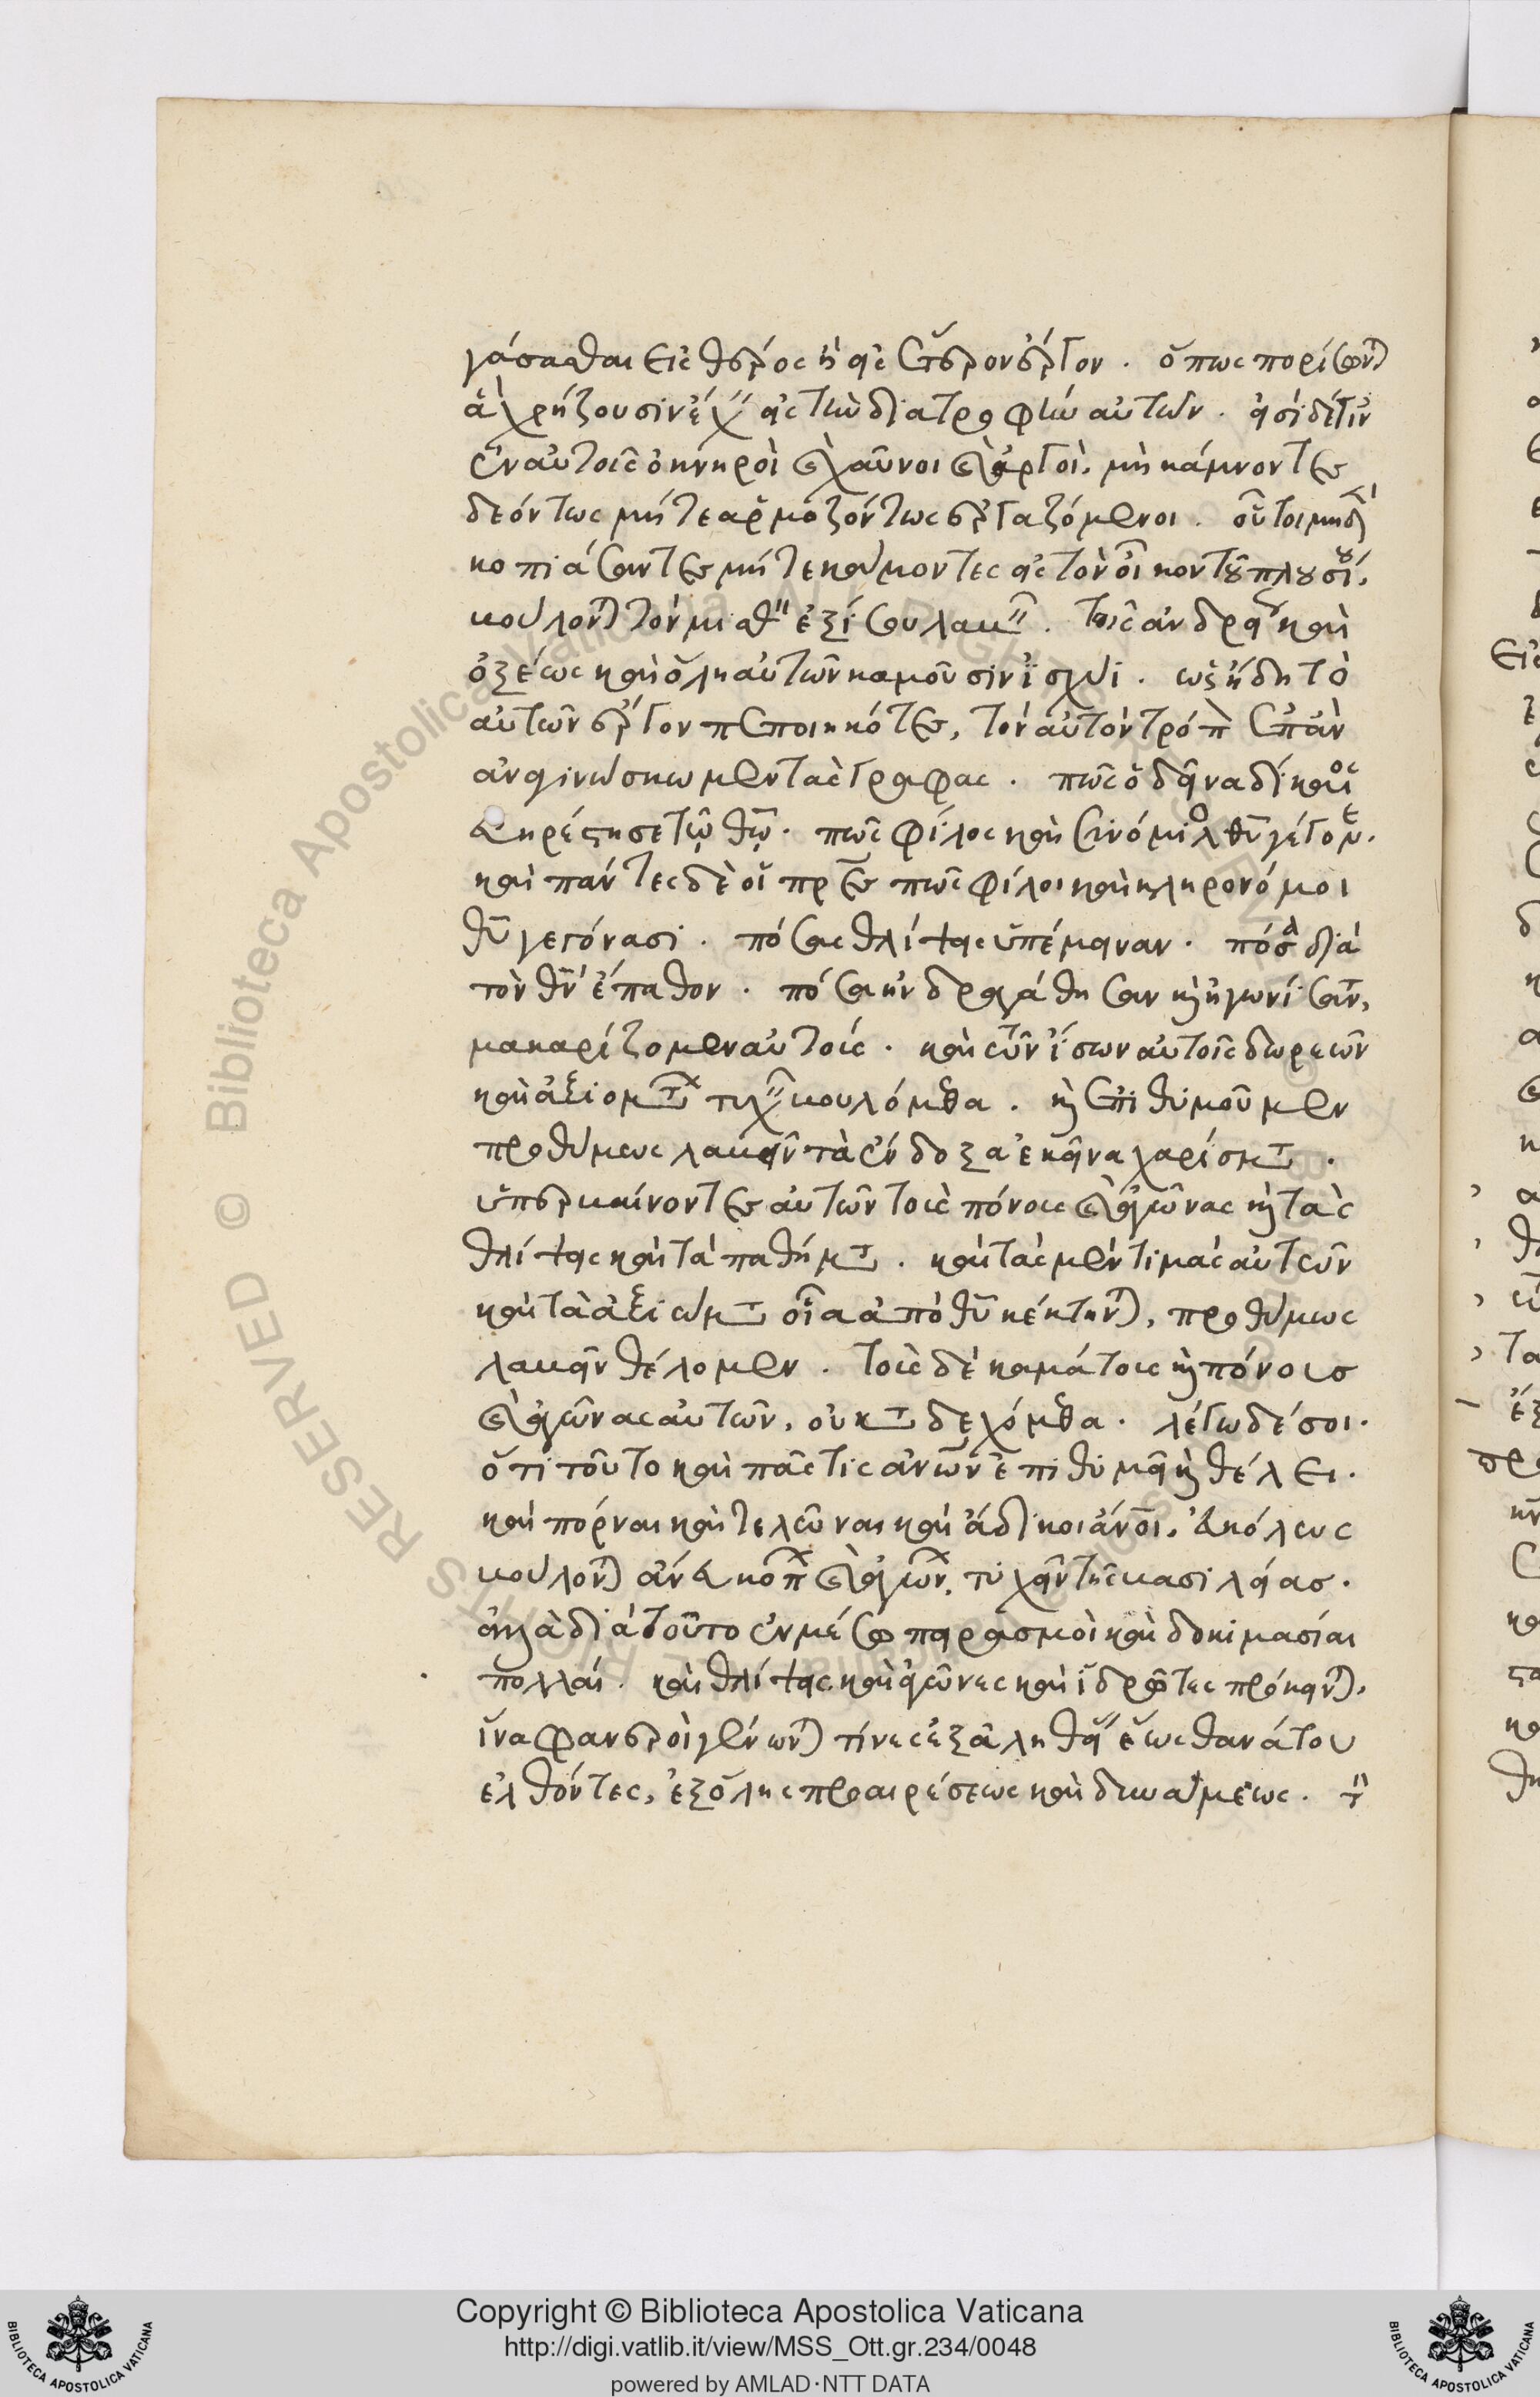 γάσασθαι εἰς θέρος ἢ εἰς ἕτερον ἔργον. ὅπως πορίσων)
ἃ χρήζουσιν ἔχ" εἰς τὴν διατροφὴν αὐτῶν. εἰσὶ δέ τιν
ἐν αὐτοῖς ὀκνηροὶ καὶ χαῦνοι καὶ ἀργοὶ, μὴ κάμνοντες
δεόντως μήτε ἁρμοζόντως ἐργαζόμενοι. οὗτοι μηδὲ
κοπιάσαντες μήτε καμόντες εἰς τὸν οἶκον τοῦ πλουσί,
βούλον) τὸν μισθ" ἐξίσου λαβ". τοῖς ἀνδρεί καὶ
ὀξέως καὶ ὅλη αὐτῶν καμοῦσιν ἰσχύϊ. ὡς ἤδη τὸ
αὐτῶν ἔργον πεποιηκότες, τὸν αὐτὸν τρόπ ἐπὰν
ἀναγινώσκωμεν τὰς γραφάς. πῶς ὁ δεῖνα δίκαι
εὐηρέστησε τῷ θῷ. πῶς φίλος καὶ συνόμιλ θυ γέγον.
καὶ πάντες δὲ οἱ πρες πῶς φίλοι καὶ κληρονόμοι
θυ γεγόνασι. πόσας θλίψεις ὑπέμειναν. πόσα διὰ
τὸν θν ἔπαθον. πόσα ἠνδραγάθησαν καὶ ἠγωνίσαν,
μακαρίζομεν αὐτούς. καὶ τῶν ἴσων αὐτοῖς δωρεῶν
καὶ ἀξιομτ τυχ" βουλόμεθα. καὶ ἐπιθυμοῦμεν
προθύμως λαβεῖν τὰ ἔνδοξα ἐκεῖνα χαρίσμτ.
ὑπερβαίνοντες αὐτῶν τοὺς πόνους καὶ ἀγῶνας καὶ τὰς
θλίψεις καὶ τὰ παθήμτ. καὶ τὰς μὲν τιμὰς αὐτῶν
καὶ τὰ ἀξιώμτ οἷα ἀπὸ θυ κέκτην), προθύμως
λαβεῖν θέλομεν. τοὺς δὲ καμάτους καὶ πόνους
καὶ ἀγῶνας αὐτῶν, οὐ κτ δεχόμεθα. λέγω δέ σοι.
ὅτι τοῦτο καὶ πᾶς τις ἀνων ἐπιθυμεῖ καὶ θέλει.
καὶ πόρναι καὶ τελῶναι καὶ ἄδικοι ἄνοι, εὐκόλως
βούλον) ἄνευ κόπ καὶ ἀγών, τυχεῖν τῆς βασιλείας.
ἀλλὰ διὰ τοῦτο ἐν μέσῳ πειρασμοὶ καὶ δοκιμασίαι
πολλαί. καὶ θλίψεις καὶ ἀγῶνες καὶ ἱδρῶτες πρόκειν),
ἵνα φανεροὶ γένων) τίνες ἐξ ἀληθεί ἕως θανάτου
ἐλθόντες, ἐξ ὅλης προαιρέσεως καὶ δυνάμεως. τ"
Copyright © Biblioteca Apostolica Vaticana
http://digi.vatlib.it/view/MSS_Ott.gr.234/0048
powered by AMLAD·NTT DATA